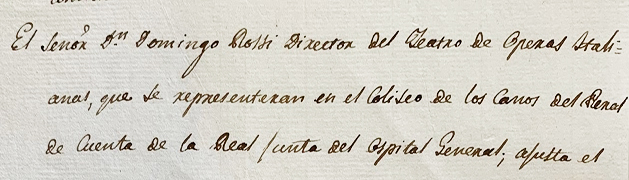 El Señor Dn Domingo Rossi Director del Teatro de Operas Itali-
anas, que se representeran en el Coliseo de los Canos del Peral
de Cuenta de la Real Junta del Ospital General; ajusta el